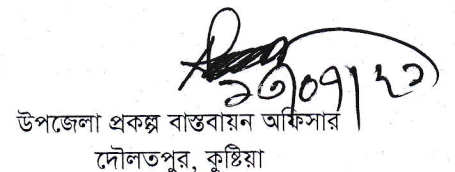 উপজেলা প্রকল্প বাস্তবায়ন অফিসার
দৌলতপুর, কুষ্টিয়া